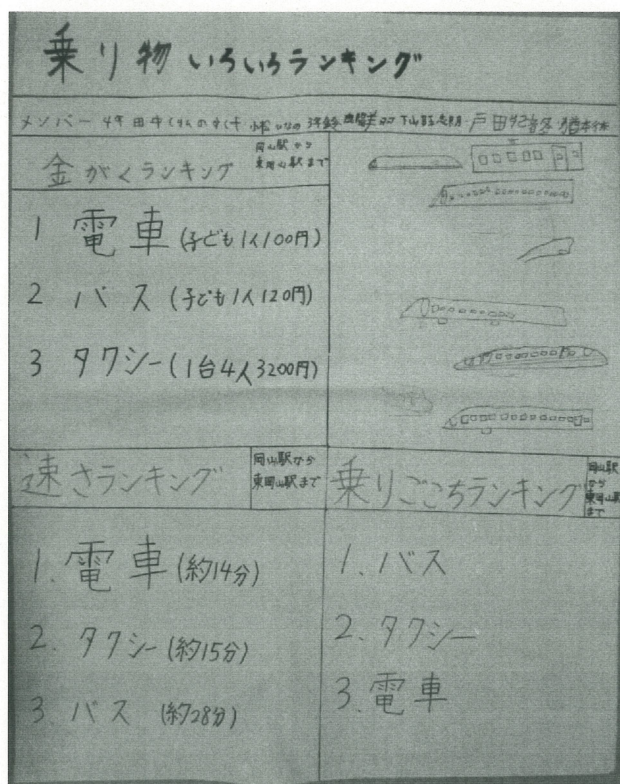 乗り物いろいろランキング
メンバー 4年 田中 3年
金がくランキング
岡山駅から
東岡山駅まで
1 電車(子ども1人100円)
2 バス(子ども1人120円)
3 タクシー(1台4人3200円)
速さランキング
岡山駅から
東岡山駅まで
1. 電車(約14分)
2. タクシー(約15分)
3. バス(約28分)
乗りごこちランキング
岡山駅
から
東岡山駅
まで
1. バス
2. タクシー
3. 電車